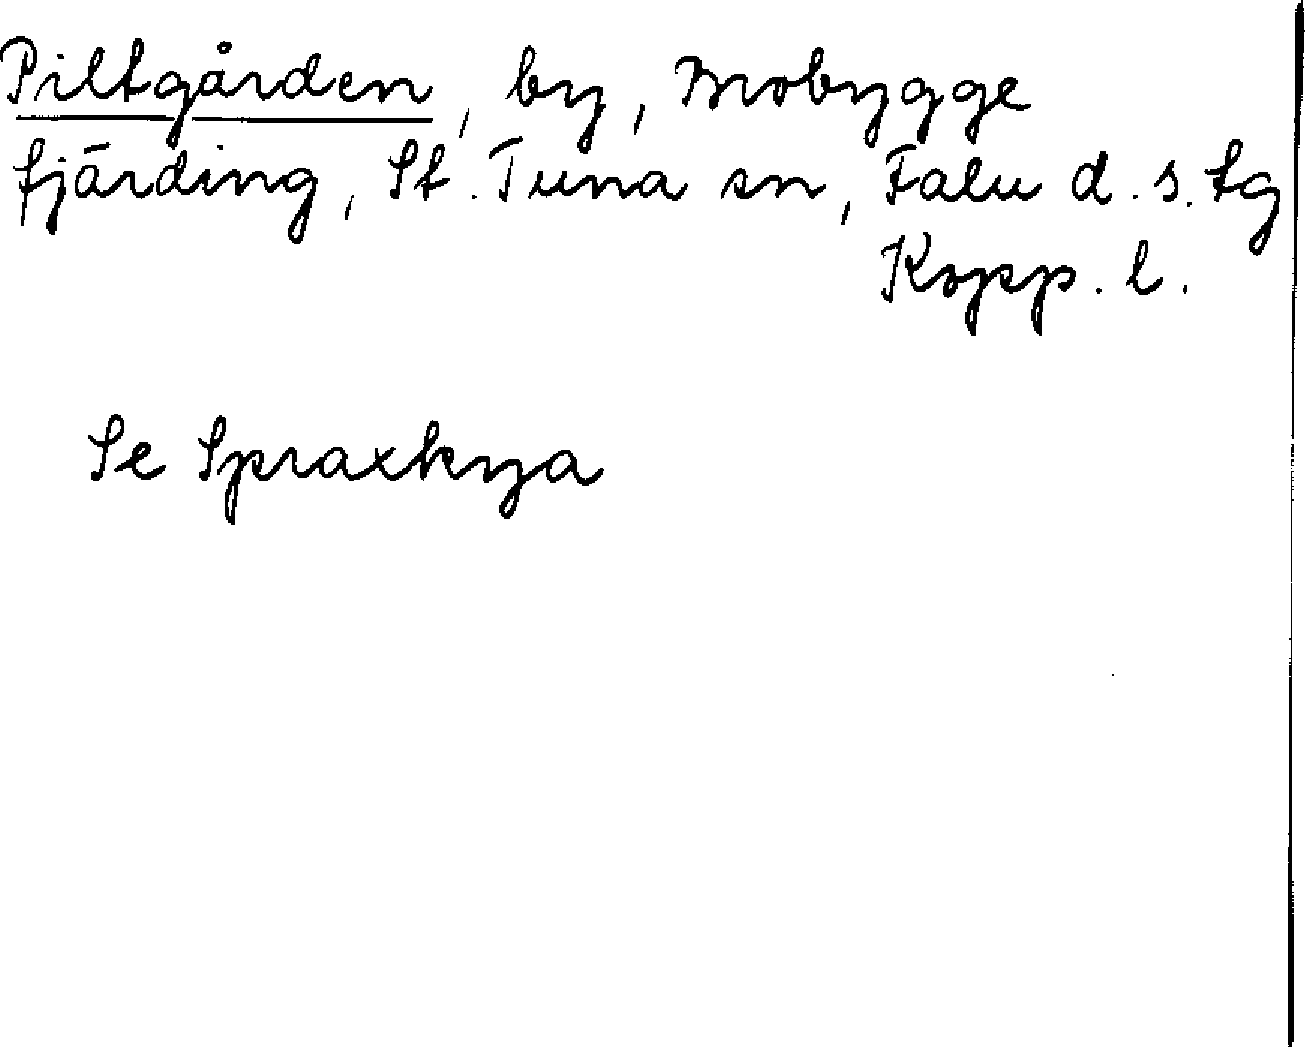 Piltgården, by, Mobygge
fjärding, St. Tuna sn, Falu d.s. tg
Kopp. l.
Se Spraxkya